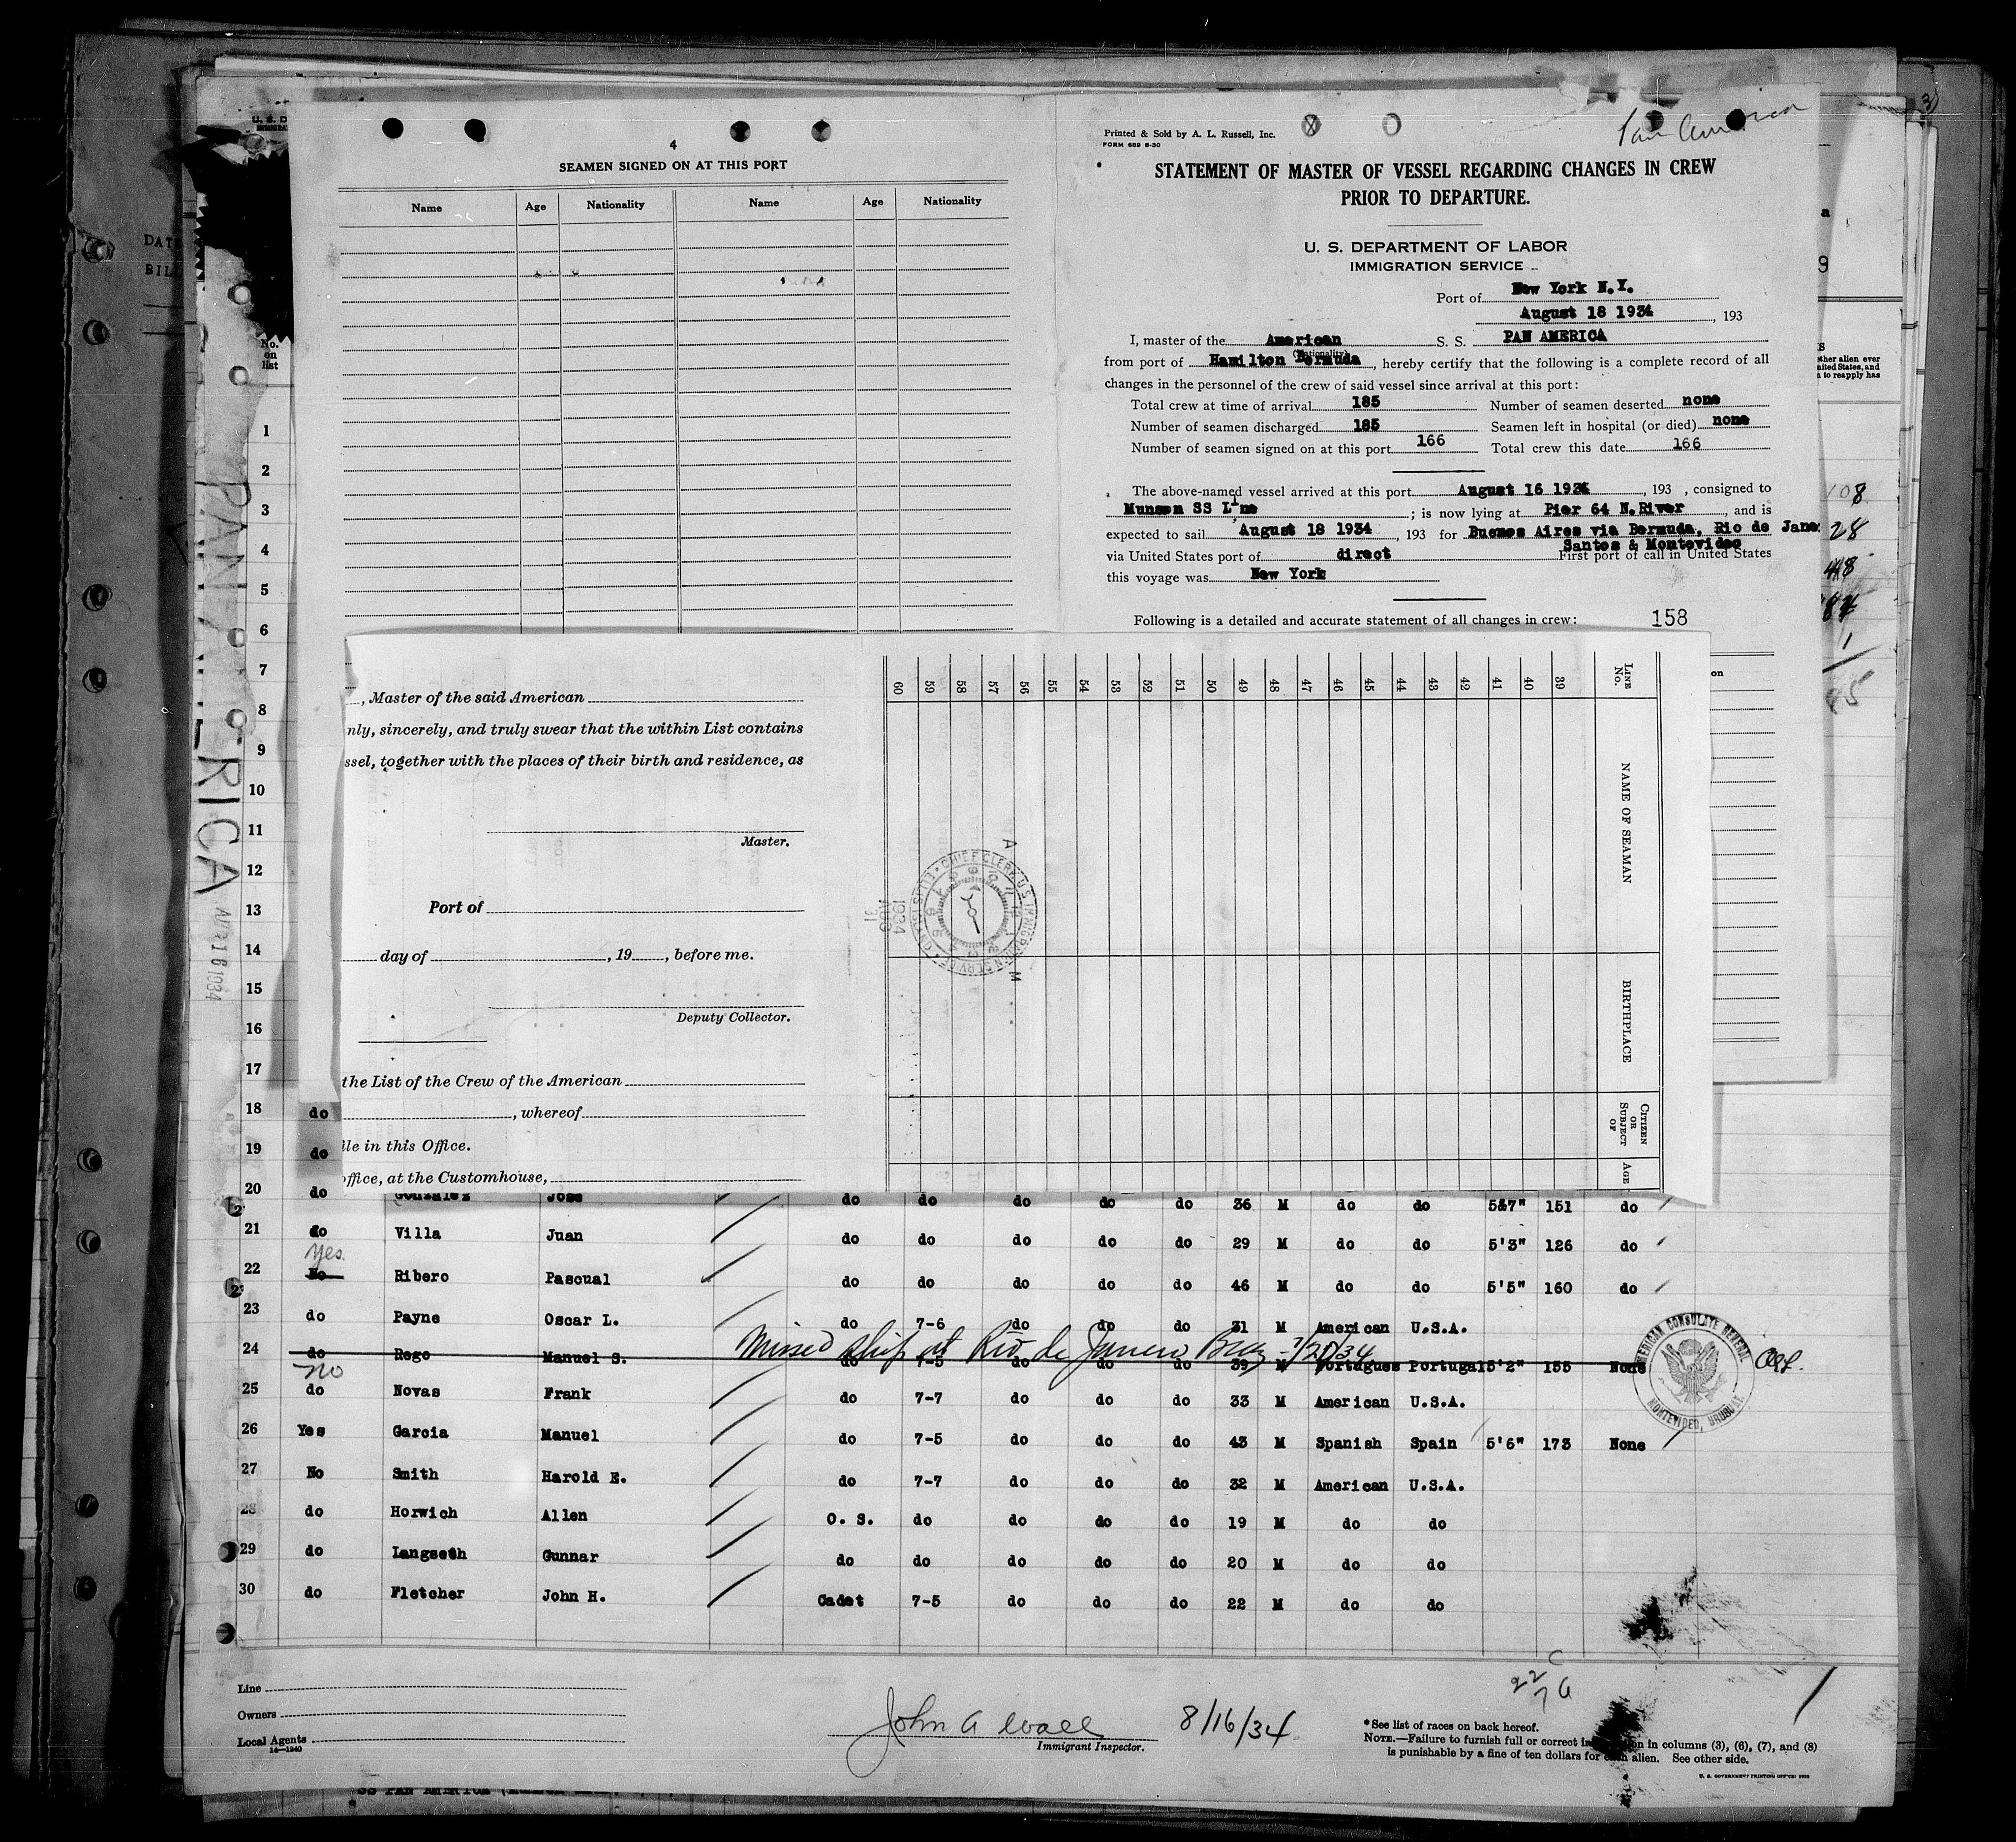 Pan America
4
SEAMEN SIGNED ON AT THIS PORT
Name Age Nationality Name Age Nationality
Printed & Sold by A. L. Russell, Inc.
FORM 689 6-30
STATEMENT OF MASTER OF VESSEL REGARDING CHANGES IN CREW
PRIOR TO DEPARTURE.
U. S. DEPARTMENT OF LABOR
IMMIGRATION SERVICE
Port of New York N.Y.
August 18 1934, 193
I, master of the American S. S. PAN AMERICA
(Nationality)
from port of Hamilton Bermuda, hereby certify that the following is a complete record of all
changes in the personnel of the crew of said vessel since arrival at this port:
Total crew at time of arrival 185 Number of seamen deserted none
Number of seamen discharged 185 Seamen left in hospital (or died) none
Number of seamen signed on at this port 166 Total crew this date 166
The above-named vessel arrived at this port August 16 1934, 193 , consigned to
Munson SS Line ; is now lying at Pier 64 N.River, and is
expected to sail August 18 1934, 193 for Buenos Aires via Bermuda, Rio de Jane
Santos & Montevideo
via United States port of direct First port of call in United States
this voyage was New York
Following is a detailed and accurate statement of all changes in crew: 158
, Master of the said American
nly, sincerely, and truly swear that the within List contains
ssel, together with the places of their birth and residence, as
Master.
Port of
day of , 19 , before me.
Deputy Collector.
the List of the Crew of the American
, whereof
ile in this Office.
office, at the Customhouse,
LINE No. NAME OF SEAMAN BIRTHPLACE CITIZEN OR SUBJECT OF AGE
39 40 41 42 43 44 45 46 47 48 49 50 51 52 53 54 55 56 57 58 59 60
CHIEF CLERK U S IMMIGRATION SERVICE
1934 AUG 31
A M
PAN AMERICA
AUG 16 1934
DAT
BIL
U. S. D
ther alien ever
nited States, and
to reapply has
108
28
48
84
1
No. on list
1
2
3
4
5
6
7
8
9
10
11
12
13
14
15
16
17
18 do
19 do
20 do Gonzalez Jose do do do do do 36 M do do 5'7" 151 do
21 do Villa Juan do do do do do 29 M do do 5'3" 126 do
Yes
22 No Ribero Pascual do do do do do 46 M do do 5'5" 160 do
23 do Payne Oscar L. do 7-6 do do do 31 M American U.S.A.
Missed ship at Rio de Janeiro Braz - 7/21/34
24 do Rego Manuel S. do 7-5 do do do 39 M Portugues Portugal 5'2" 155 None
No
25 do Novas Frank do 7-7 do do do 33 M American U.S.A.
26 Yes Garcia Manuel do 7-5 do do do 43 M Spanish Spain 5'6" 173 None
27 No Smith Harold E. do 7-7 do do do 32 M American U.S.A.
28 do Horwich Allen O. S. do do do do 19 M do do
29 do Langseth Gunnar do do do do do 20 M do do
30 do Fletcher John H. Cadet 7-5 do do do 22 M do do
AMERICAN CONSULATE GENERAL
MONTEVIDEO, URUGUAY.
22 C
7 A
Line
Owners
Local Agents
14—1240
John A Wall 8/16/34
Immigrant Inspector.
*See list of races on back hereof.
NOTE.—Failure to furnish full or correct in on in columns (3), (6), (7), and (8)
is punishable by a fine of ten dollars for each alien. See other side.
U. S. GOVERNMENT PRINTING OFFICE
SS PAN AMERICA